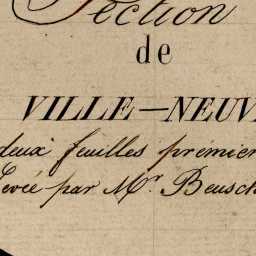 Section
de
VILLE-NEUV
deux feuilles premier
Levée par Mr. Beusch